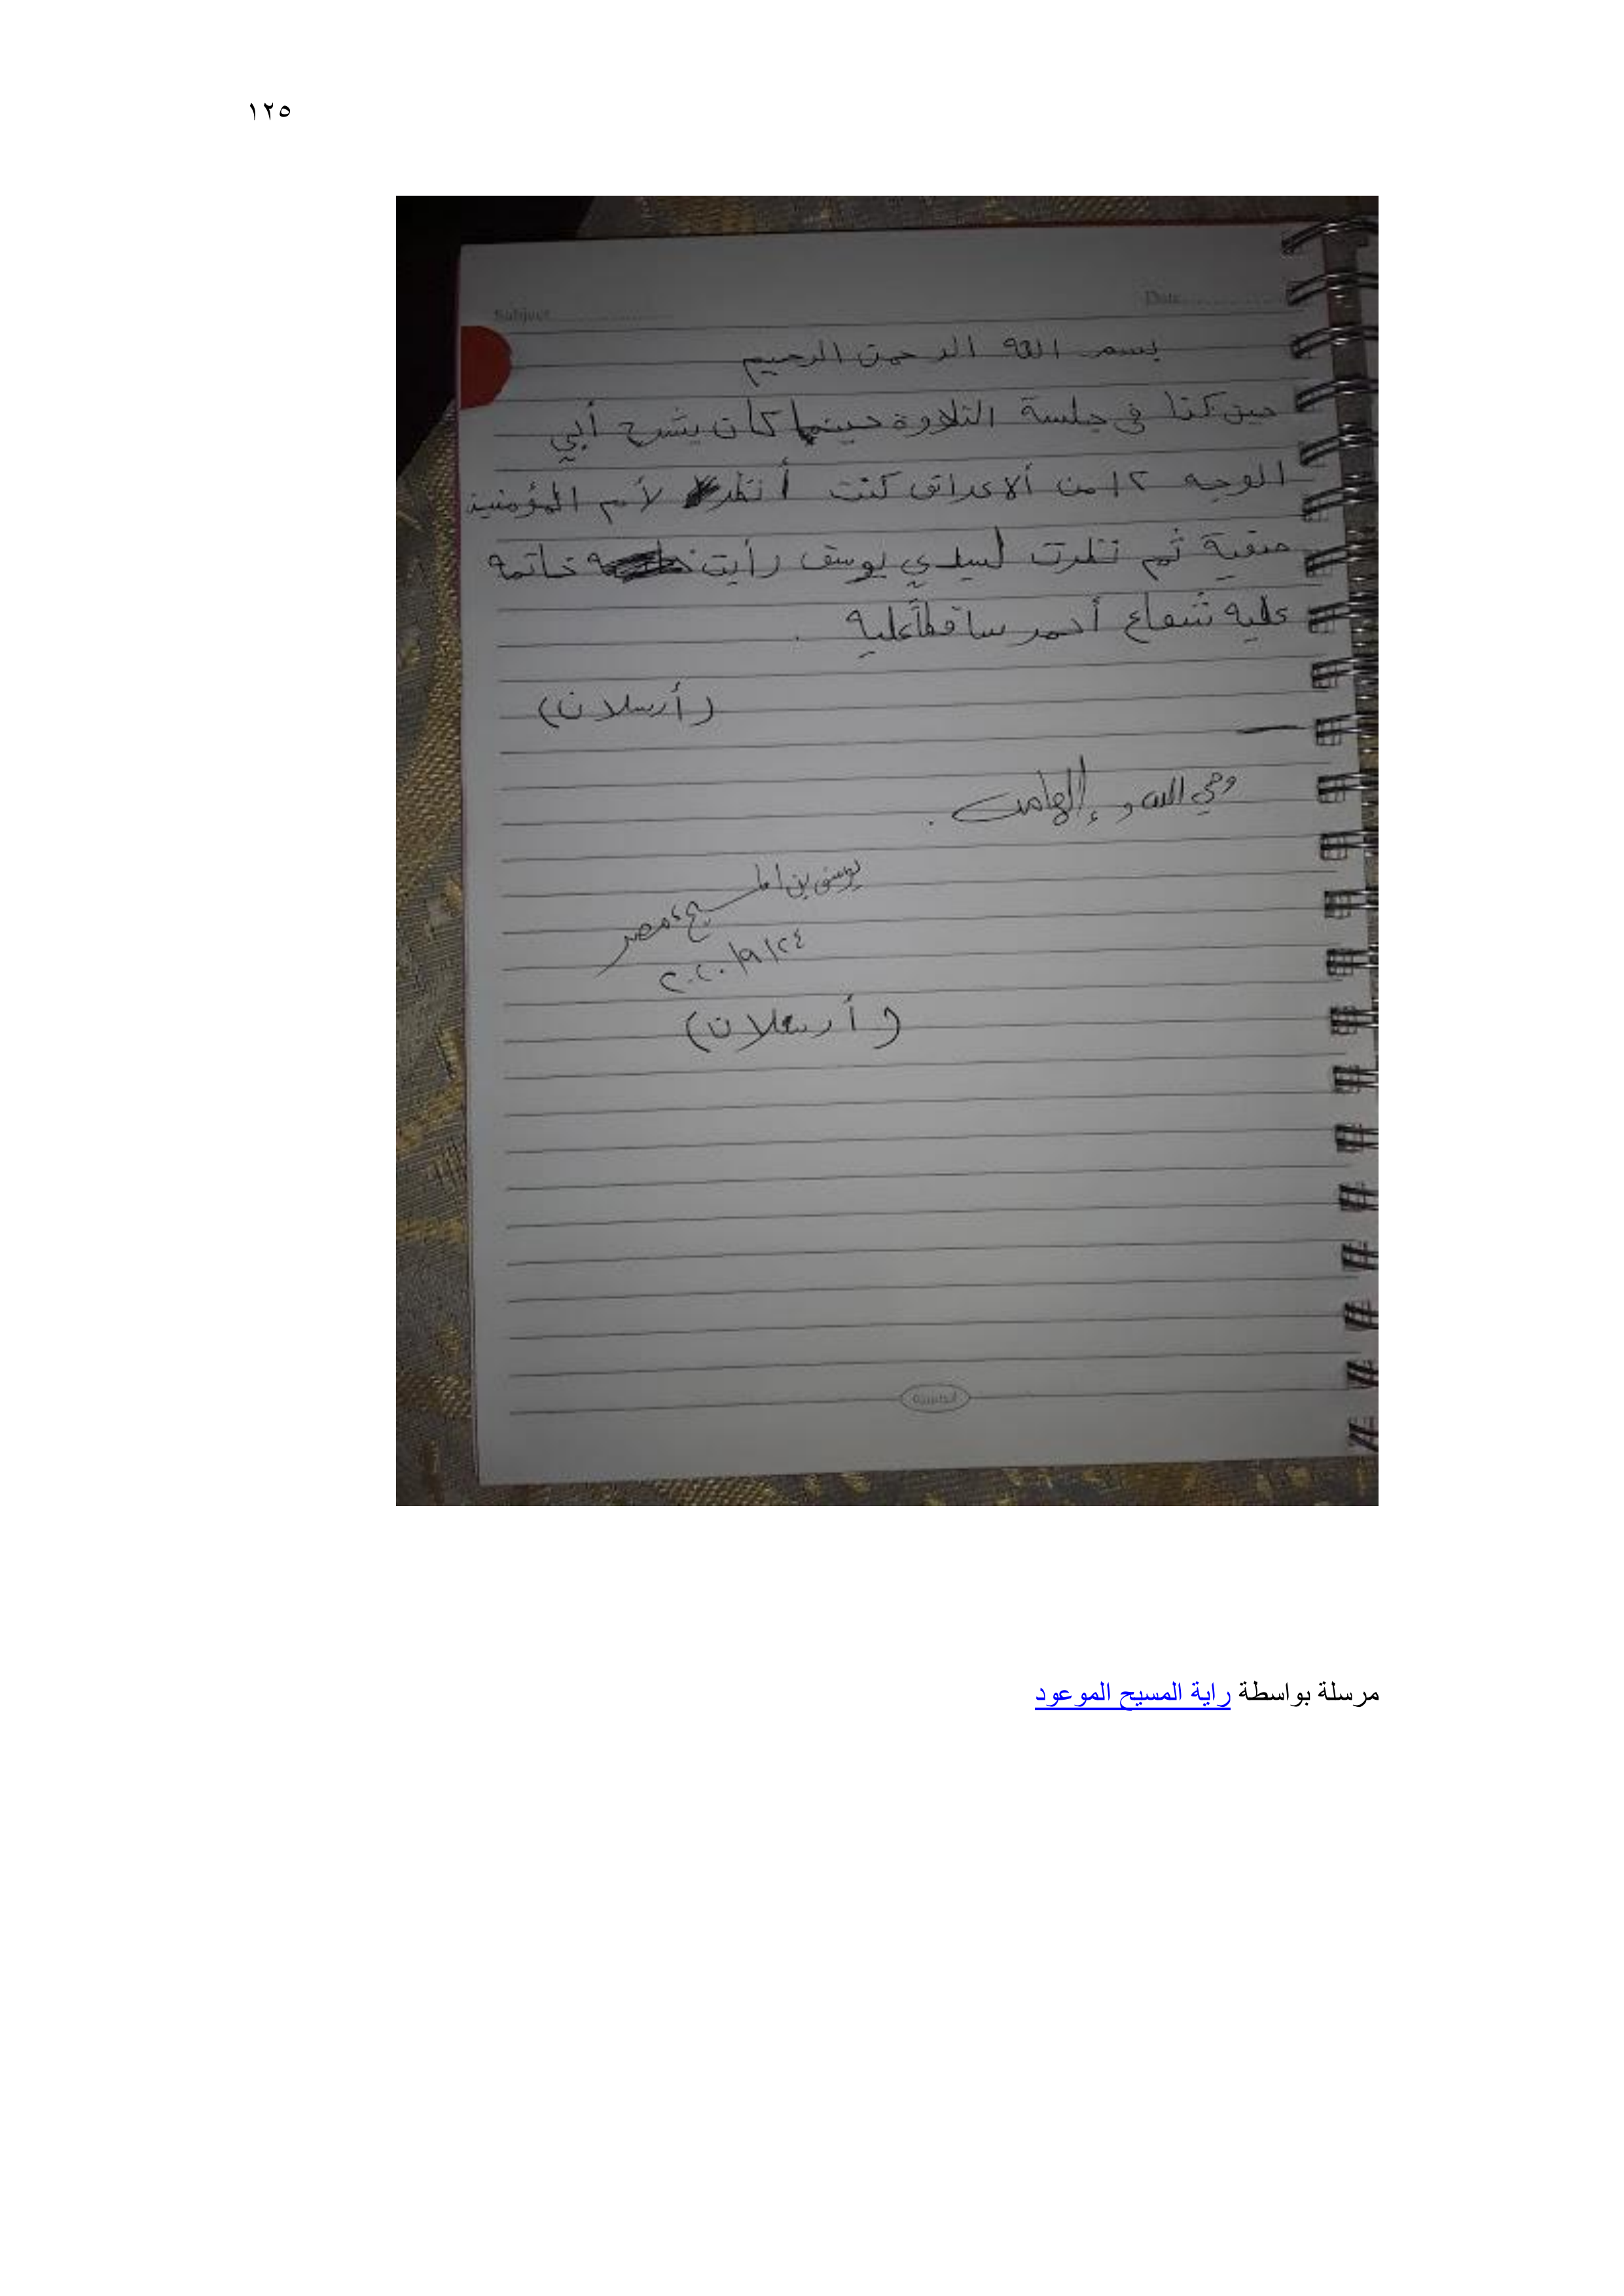 ١٢٥
Subject
Date
بسم الله الرحمن الرحيم
حين كنا في جلسة التلاوة حينما كان يشرح أبي
الوجه ١٢ من ألاعراف كنت أنظر لأم المؤمنين
صفية ثم نظرت لسيدي يوسف رأيت خاتمه
عليه شعاع أحمر ساقطاً عليه .
(أرسلان)
وحي الله و إلهامه .
يوسف بن المسيح ، مصر
٢٠٢٠/٩/٢٤
(أرسلان)
مرسلة بواسطة راية المسيح الموعود